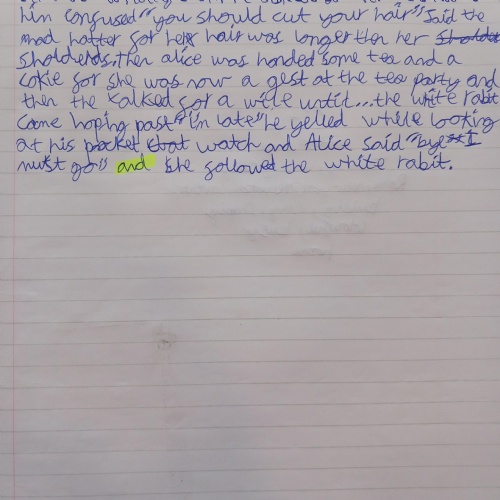 him confused "you should cut your hair" Said the
mad hatter for her hair was longer then her
Sholderds, then alice was handed some tea and a
cokie for she was now a gest at the tea party and
then the talked for a wile until...the white rabit
came hoping past "i'm late" he yelled while looking
at his pocket watch and Alice said "bye I
must go" and She followed the white rabit.